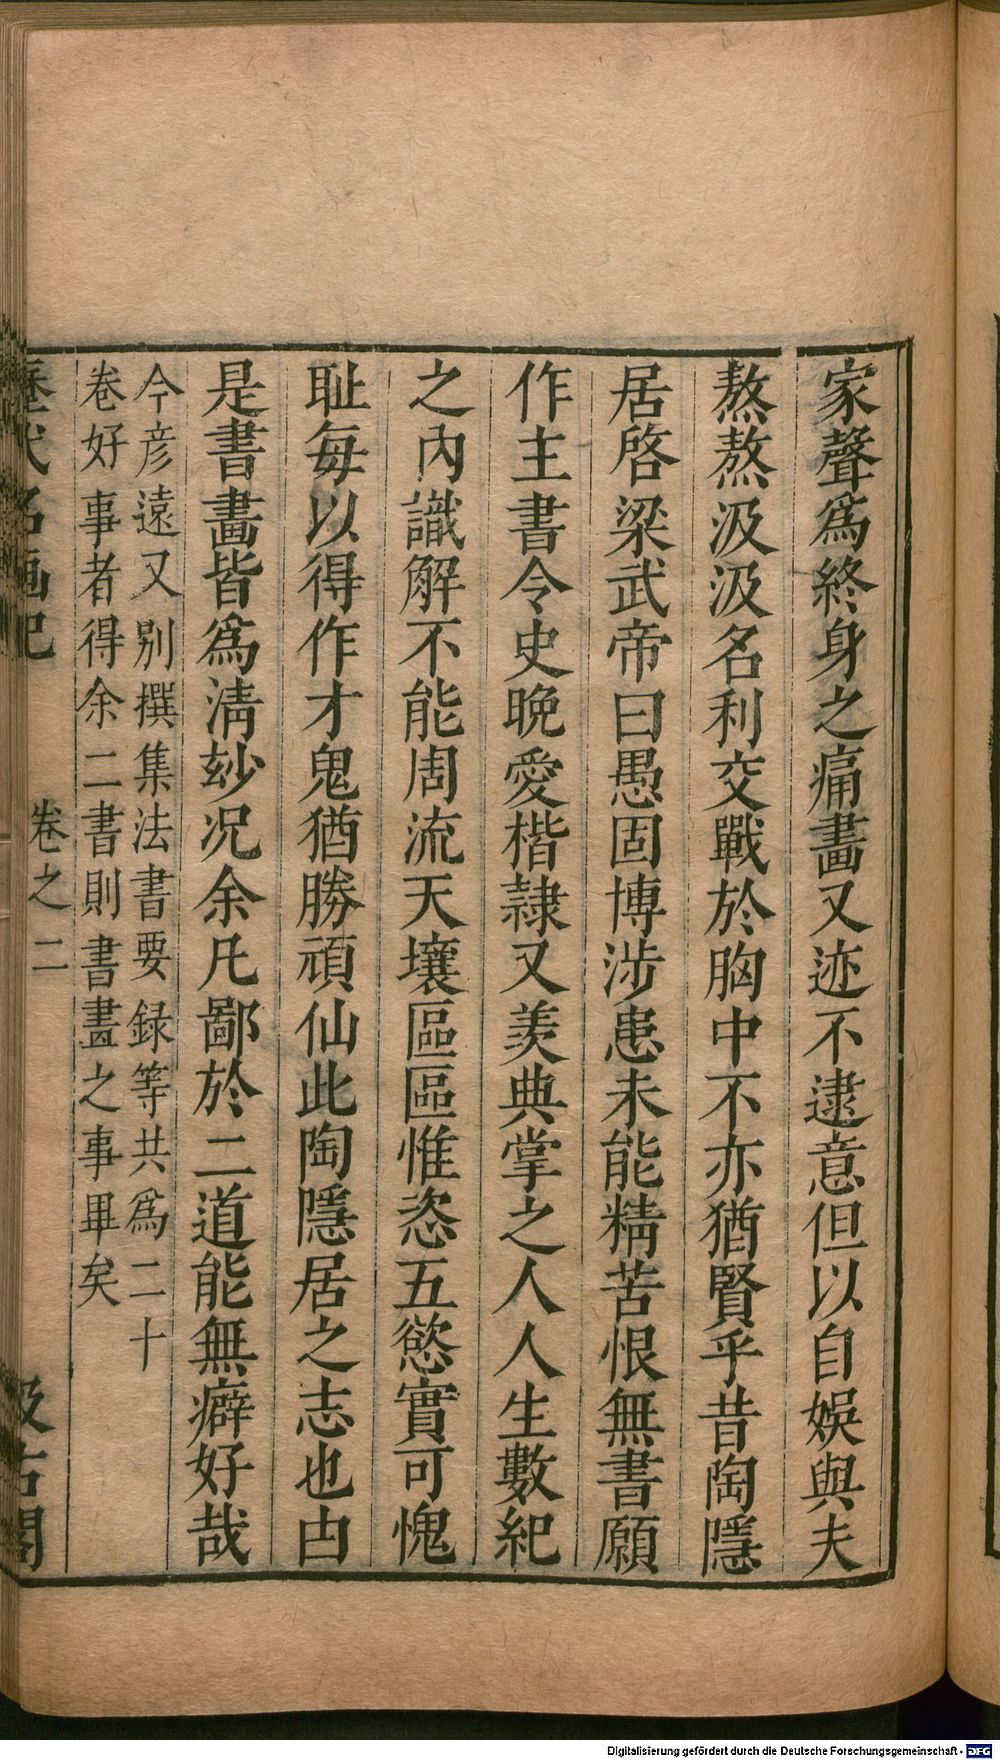 家聲爲終身之痛畫又迹不逮意但以自娛與夫
熬熬汲汲名利交戰於胸中不亦猶賢乎昔陶隱
居啓梁武帝曰愚固博涉患未能精苦恨無書願
作主書令史晚愛楷隷又羨典掌之人人生數紀
之內識解不能周流天壤區區惟恣五慾實可愧
耻每以得作才鬼猶勝頑仙此陶隱居之志也由
是書畫皆爲淸玅况余凡鄙於二道能無癖好哉
今彦遠又别撰集法書要録等共爲二十
卷好事者得余二書則書畫之事畢矣
歷代名画記 卷之二 汲古閣
Digitalisierung gefördert durch die Deutsche Forschungsgemeinschaft - DFG